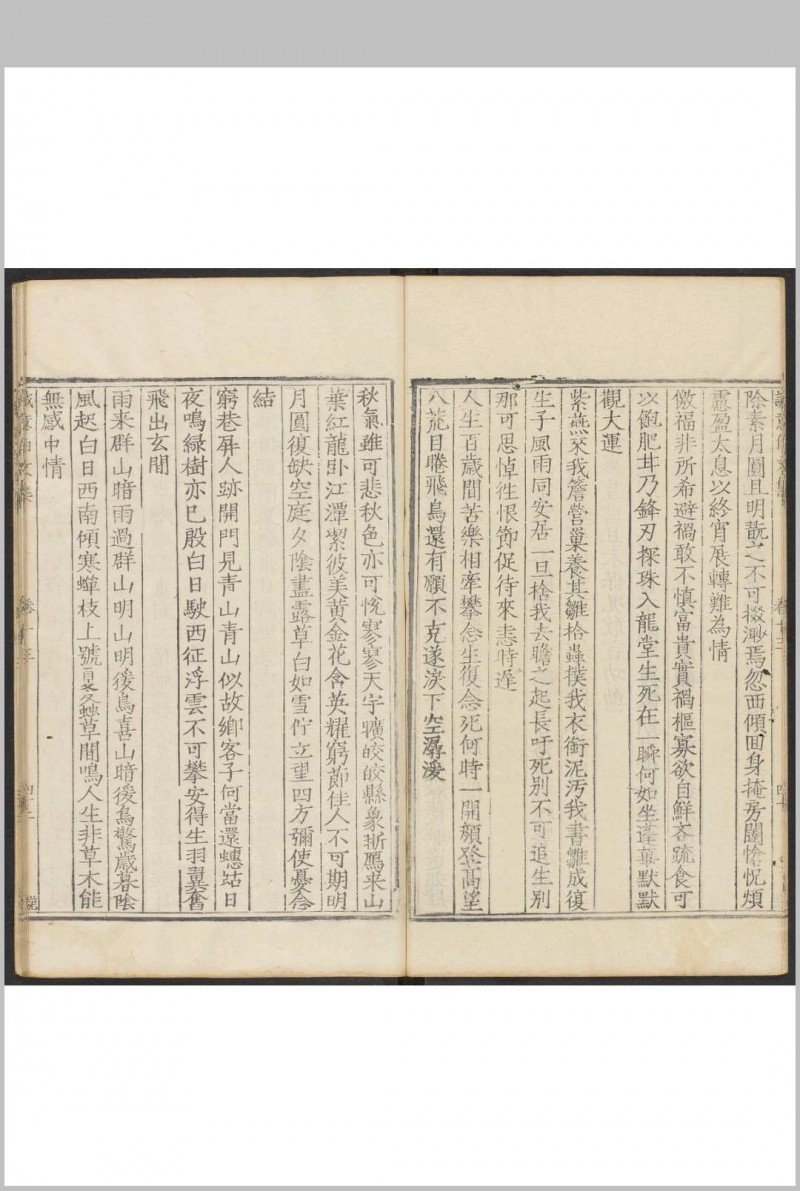 除素月圓且明翫之不可掇渺焉忽西傾回身掩房闥愴怳煩
慮盈太息以終宵展轉難為情
儌福非所希避禍敢不慎富貴實禍樞寡欲自鮮吝疏食可
以飽肥甘乃鋒刃探珠入龍堂生死在一瞬何如坐蓬蓽默默
觀大運
紫燕來我簷營巢養其雛拾蟲撲我衣銜泥汚我書雛成復
生子風雨同安居一旦捨我去瞻之起長吁死別不可追生別
那可思悼徃恨節促待來恚時遲
人生百歲間苦樂相牽攀念生復念死何時一開顏登高望
八荒目睠飛鳥還有願不克遂淚下空潺湲
秋氣雖可悲秋色亦可悅寥寥天宇曠皎皎縣象晢鴈来山
葉紅龍卧江潭潔彼美黃金花含英耀窮節佳人不可期明
月圓復缺空庭夕陰盡露草白如雪佇立望四方彌使憂念
結
窮巷屏人跡開門見青山青山似故鄉客子何當還蟪蛄日
夜鳴綠樹亦已殷白日駛西征浮雲不可攀安得生羽翼奮
飛出玄間
雨来群山暗雨過群山明山明後鳥喜山暗後鳥驚歲暮陰
風起白日西南傾寒蟬枝上號百蟲草間鳴人生非草木能
無感中情
誠意伯文集